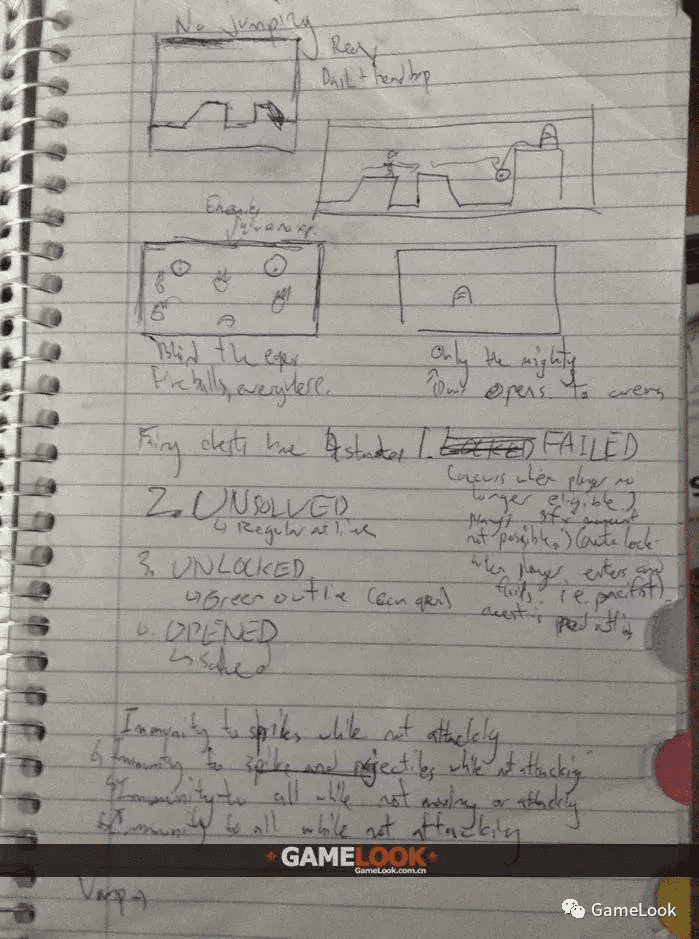 No jumping
Ready
Dash + headbop
Enemy
Blind the eyes
Fireballs, everywhere.
Only the mighty
opens to
Fairy chests have 4 states 1. LOCKED FAILED
(occurs when player no
longer eligible.)
not possible.) (auto lock
when player enters and
fails. i.e. pacifist)
2. UNSOLVED
↳ Regular outline
3. UNLOCKED
↳ Green outline (can open)
4. OPENED
↳ Solved
Immunity to spikes while not attacking
↳ Immunity to spike and projectiles while not attacking
↳ Immunity to all while not moving or attacking
↳ Immunity to all while not attacking
Vamp →
GAMELOOK
GameLook.com.cn
GameLook